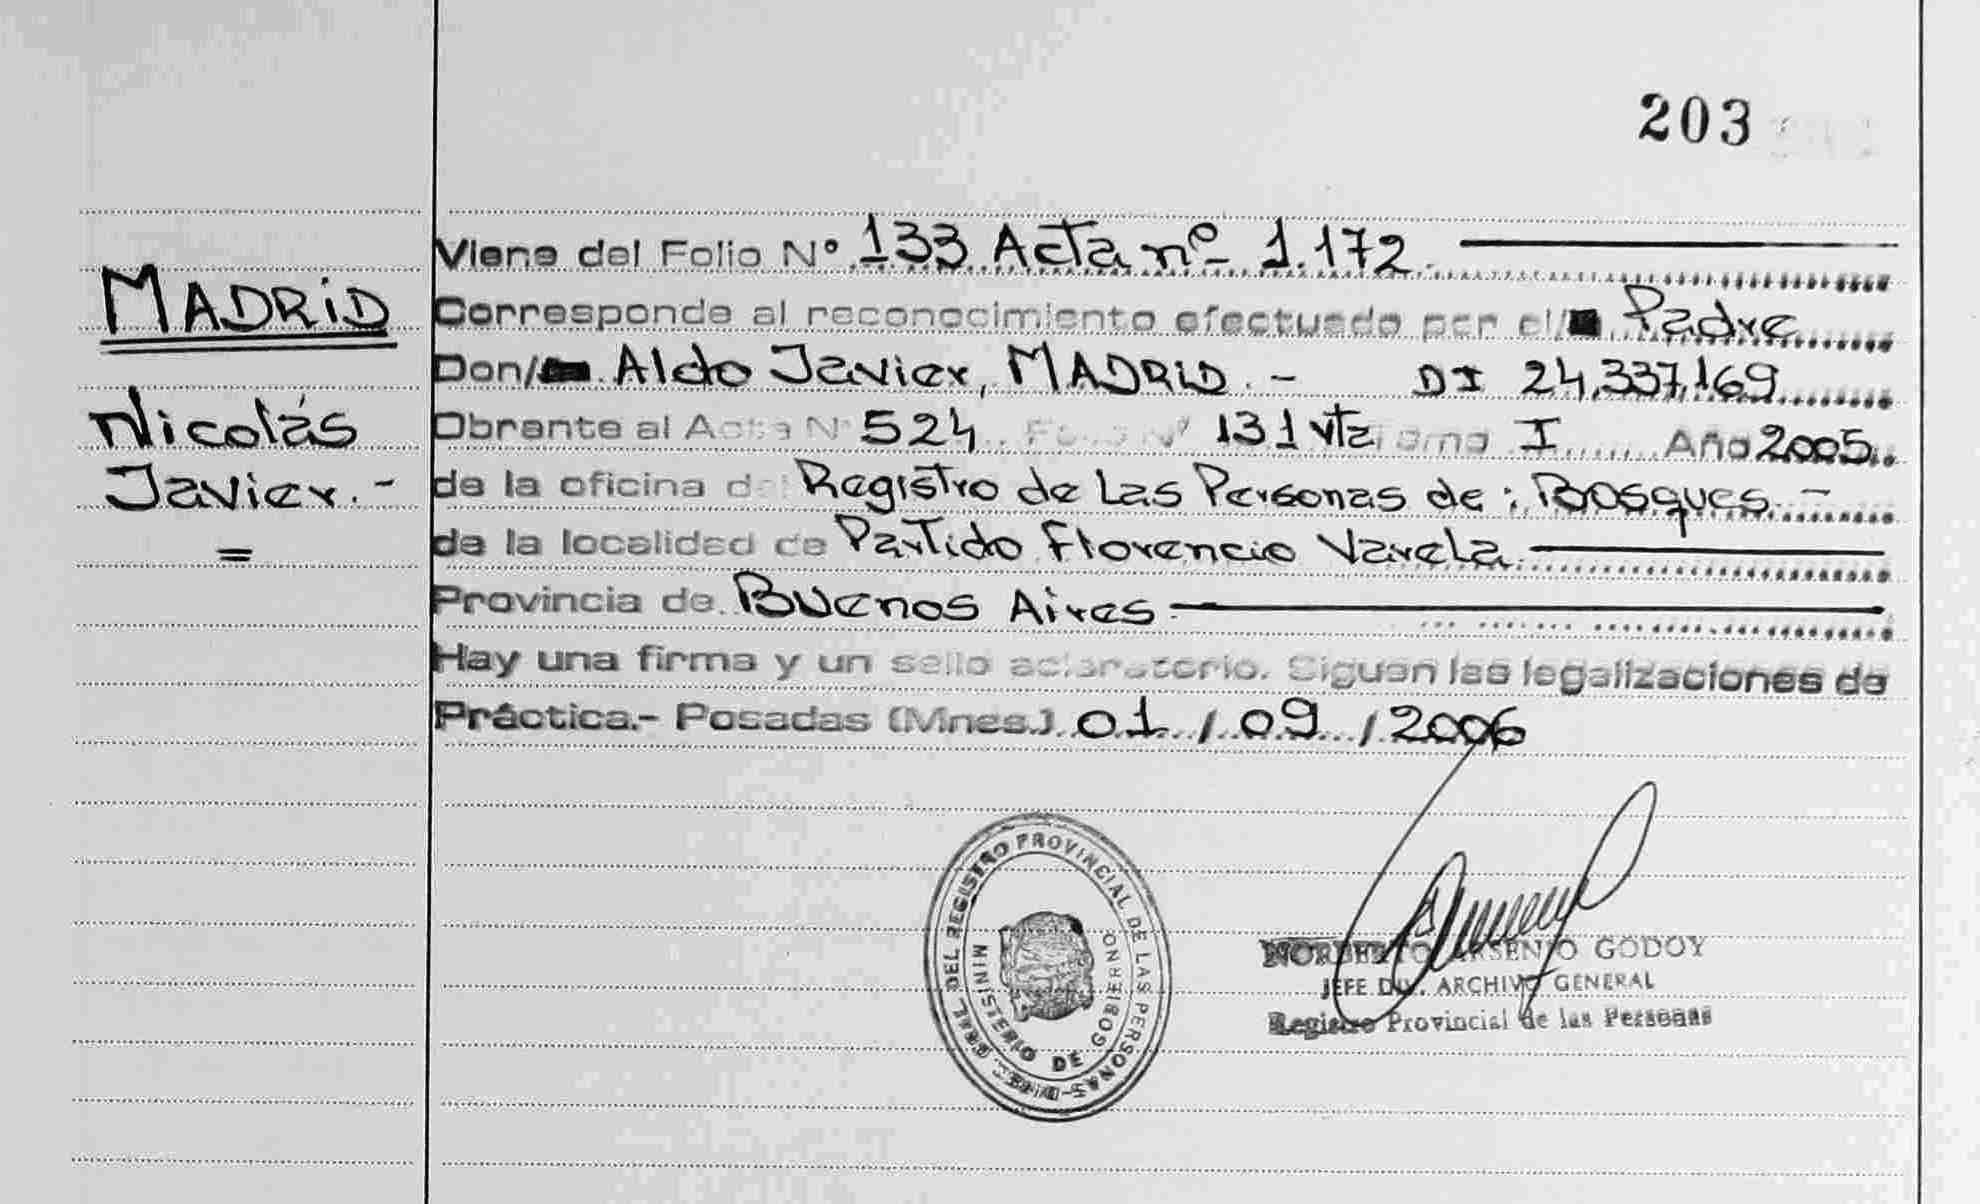 203
MADRID
Nicolás
Javier.-
=
Viene del Folio Nº 133 Acta nº 1.172.
Corresponde al reconocimiento efectuado por el/ Padre
Don/ Aldo Javier, MADRID.- DI 24.337.169
Obrante al Acta Nº 524 Folio Nº 131 vta Tomo I Año 2005
de la oficina del Registro de Las Personas de: Bosques.-
de la localidad de Partido Florencio Varela.
Provincia de Buenos Aires
Hay una firma y un sello aclaratorio. Siguen las legalizaciones de
Práctica.- Posadas (Mnes.) 01 / 09 / 2006
GRAL DEL REGISTRO PROVINCIAL DE LAS PERSONAS
MINISTERIO DE GOBIERNO
NORBERTO ARSENIO GODOY
JEFE DIV. ARCHIVO GENERAL
Registro Provincial de las Personas